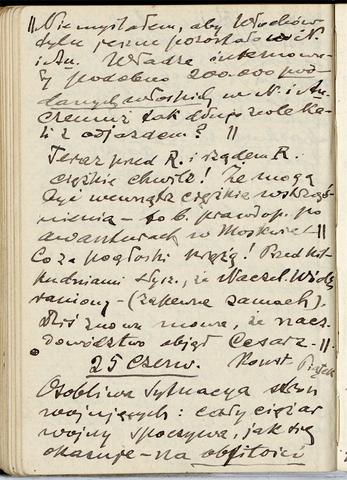 || Nie myślałem, aby Włochów
tylu jeszcze pozostało w N.
i Au. Władze internowa-
ły podobno 200.000 pod-
danych włoskich w N. i Au.
Czemuż tak długo zwleka-
li z odjazdem? ||
Teraz przed R. i rządem R.
ciężkie chwile! Że mogą
być wewnątrz ciężkie wstrząś-
nienia – to b. prawdop. po
awanturach w Moskwie – ||
Co za pogłoski krążą! Przed kil-
ku dniami słysz., że Naczel. Wódz
raniony – (zapewne zamach).
Dziś znowu mowa, że nacz.
dowództwo objął Cesarz. – ||
25 Czerw. Piątek
Osobliwa sytuacya stron
wojujących: cały ciężar
wojny spoczywa, jak się
okazuje – na obfitości